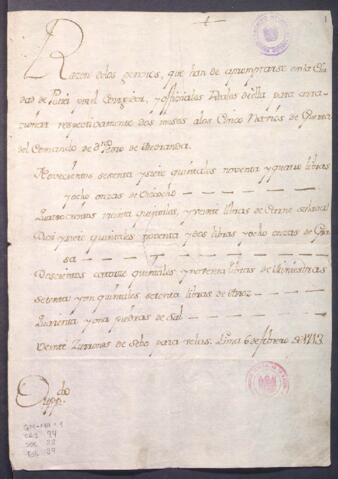 Razon delos generos, que han de aprromptarse en la Ciu
dad de Piura por el Corregidor, y officiales Reales de ella para conti
nuar respectivamente dos meses alos Cinco Navios de Guerra
del Comando de Dn
Novecientos sesenta y siete quintales noventa y quatro libras
y ocho onzas de Biscocho
Quatrocientos treinta quintales, y veinte libras de Carne salada
Diez y siete quintales noventa y dos libras y ocho onzas de Gra
sa
Doscientos catorze quintales y noventa libras de Ministras
setenta y un quintales setenta libras de Arroz
Quarenta y una piedras de Sal
Veinte Zurrones de Sebo para velas. Lima 6 de febrero de
GM-MA-1
CAJ 94
DOC 22
FOL 29